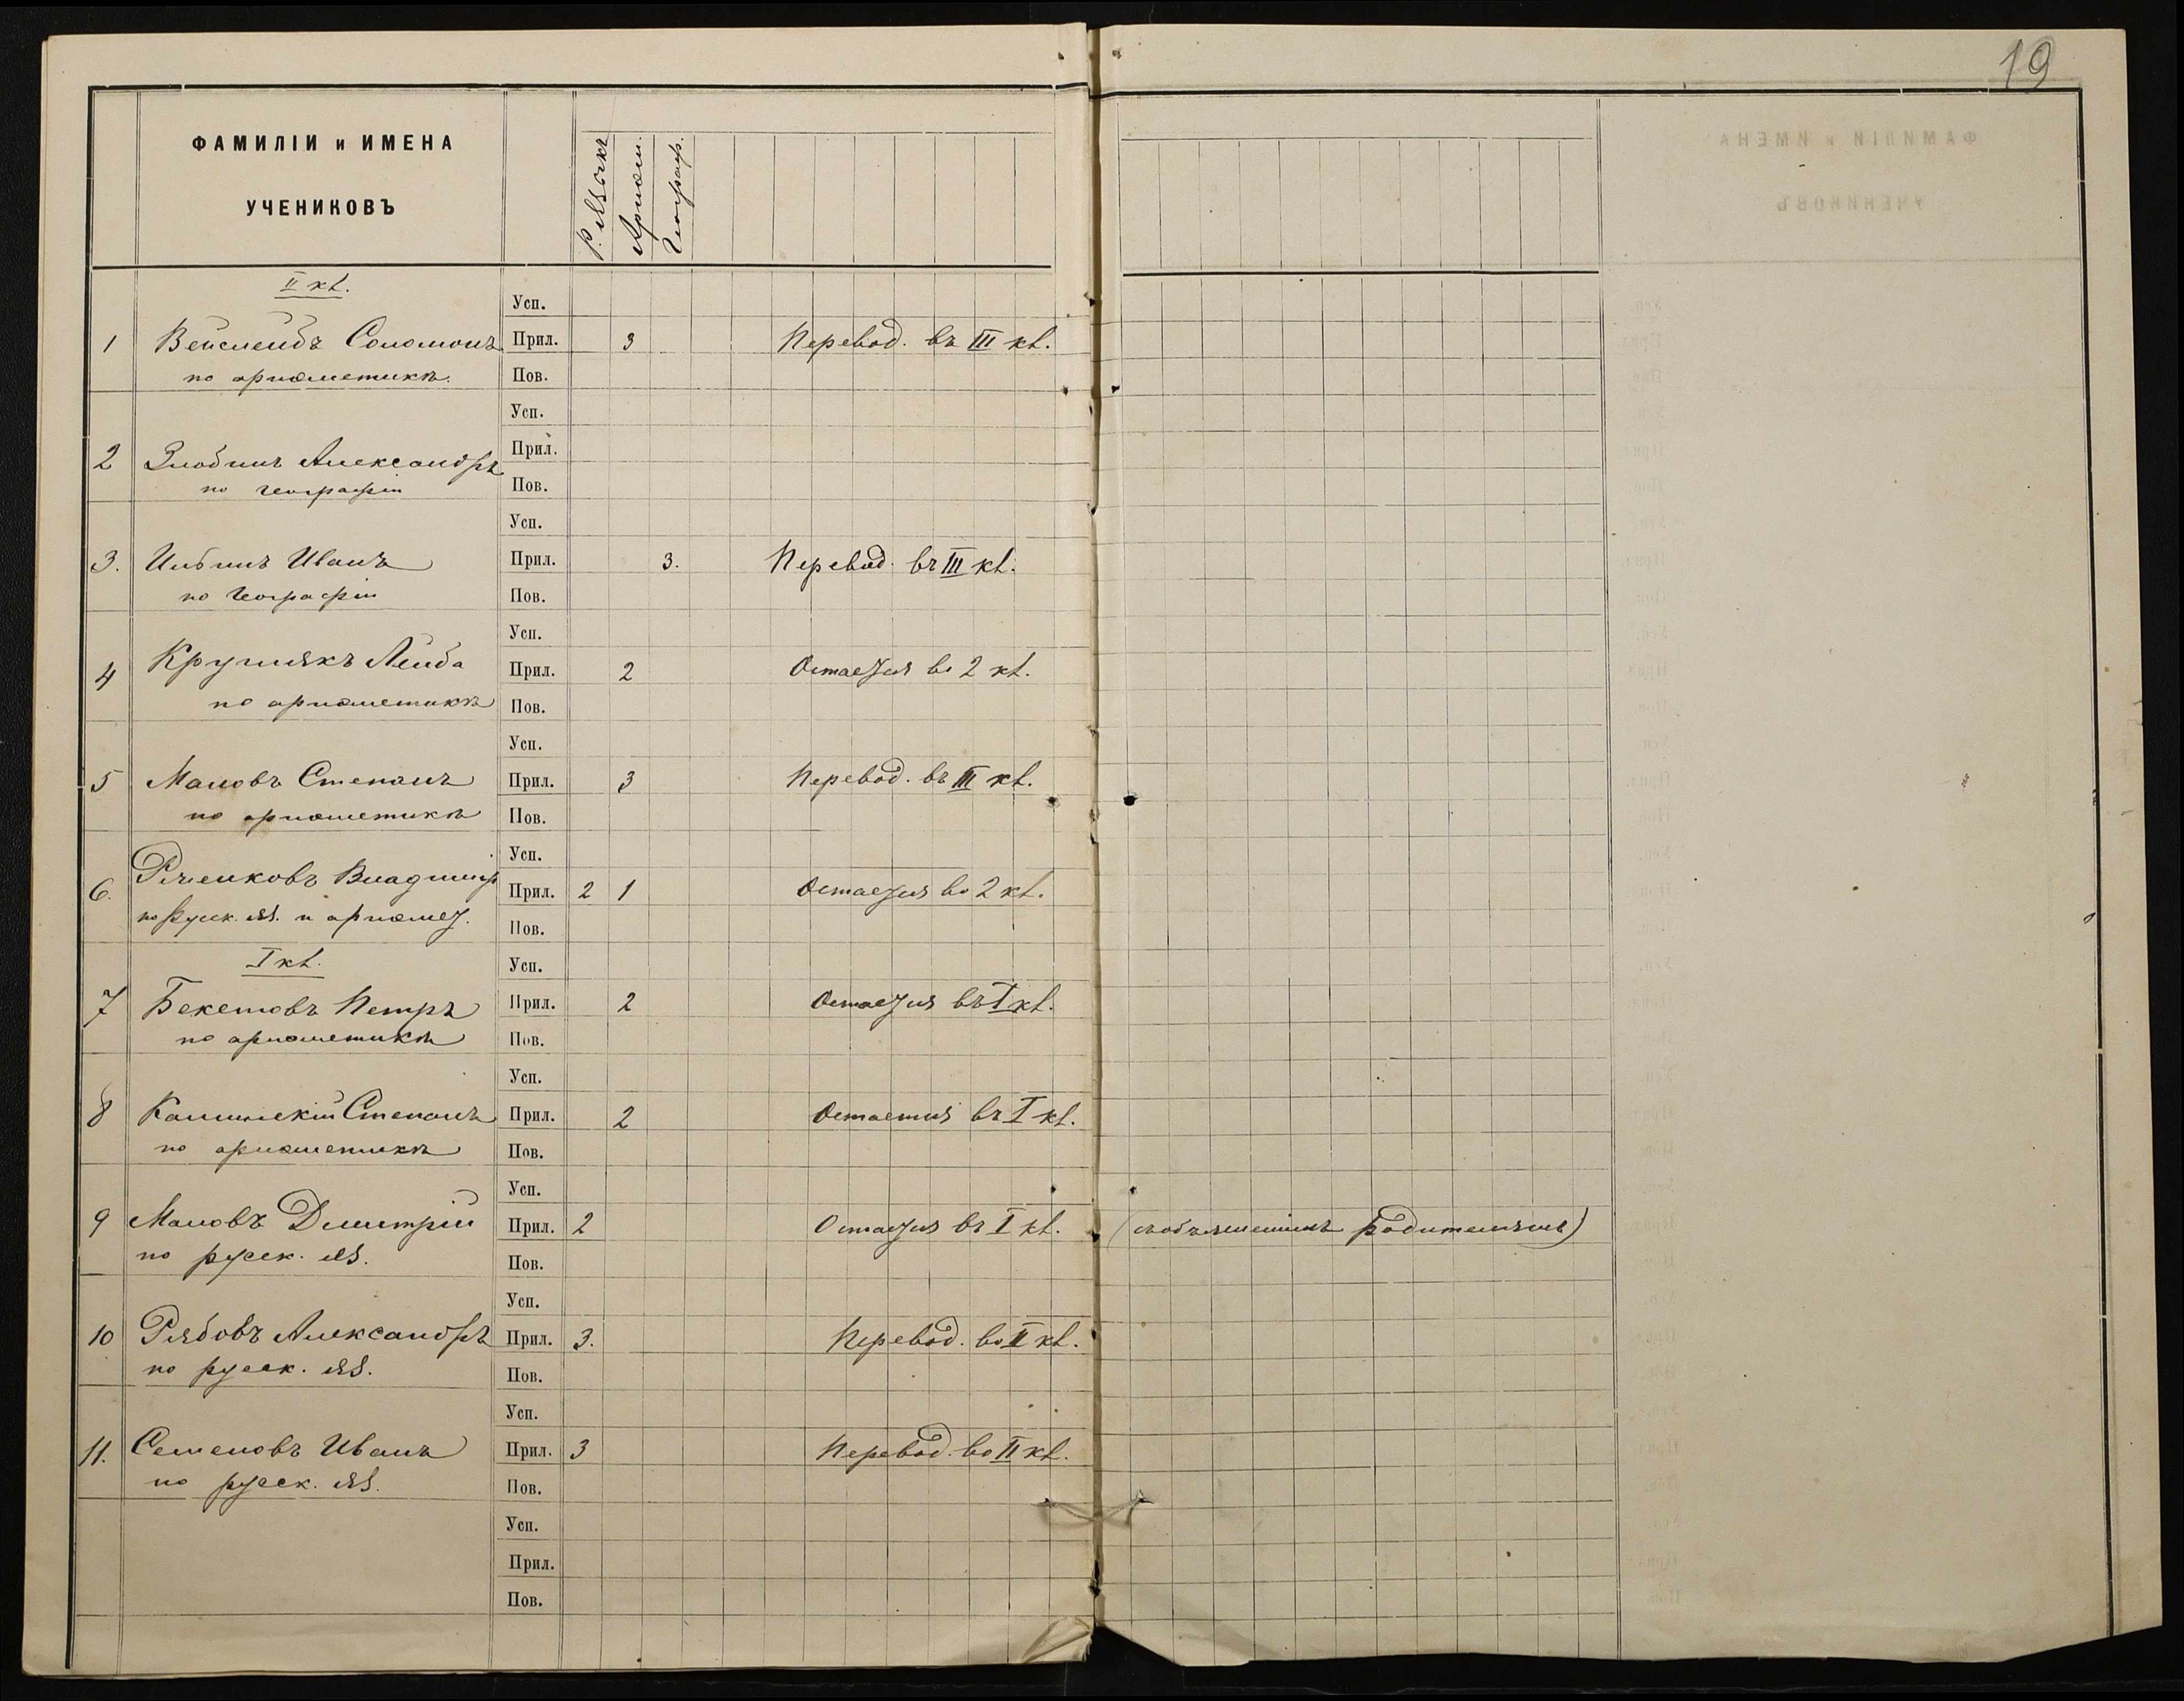 19
ФАМИЛІИ и ИМЕНА
УЧЕНИКОВЪ
Р. языкъ
Ариѳм.
Географ.
II кл.
Усп.
1 Вейслейбъ Соломонъ Прил. 3 Перевод. въ III кл.
по ариѳметикѣ. Пов.
Усп.
2 Злобинъ Александръ Прил.
по географіи Пов.
Усп.
3. Ильинъ Иванъ Прил. 3. Перевод. въ III кл.
по Географіи Пов.
Усп.
4 Кругликъ Лейба Прил. 2 Остается во 2 кл.
по ариѳметикѣ Пов.
Усп.
5 Маловъ Степанъ Прил. 3 Перевод. въ III кл.
по ариѳметикѣ Пов.
Усп.
6. Владимир Прил. 2 1 Остается во 2 кл.
по Русск. яз. и ариѳмет. Пов.
I кл.
Усп.
7 Бекетовъ Петръ Прил. 2 Остается въ I кл.
по ариѳметикѣ Пов.
Усп.
8 Калинскій Степанъ Прил. 2 Остается въ I кл.
по ариѳметикѣ Пов.
Усп.
9 Маловъ Дмитрій Прил. 2 Остается въ I кл. (съ объясненіемъ родителямъ)
по русск. яз. Пов.
Усп.
10 Рябовъ Александръ Прил. 3. Перевод. во II кл.
по русск. яз. Пов.
Усп.
11. Семеновъ Иванъ Прил. 3 Перевод. во II кл.
по русск. яз. Пов.
Усп.
Прил.
Пов.